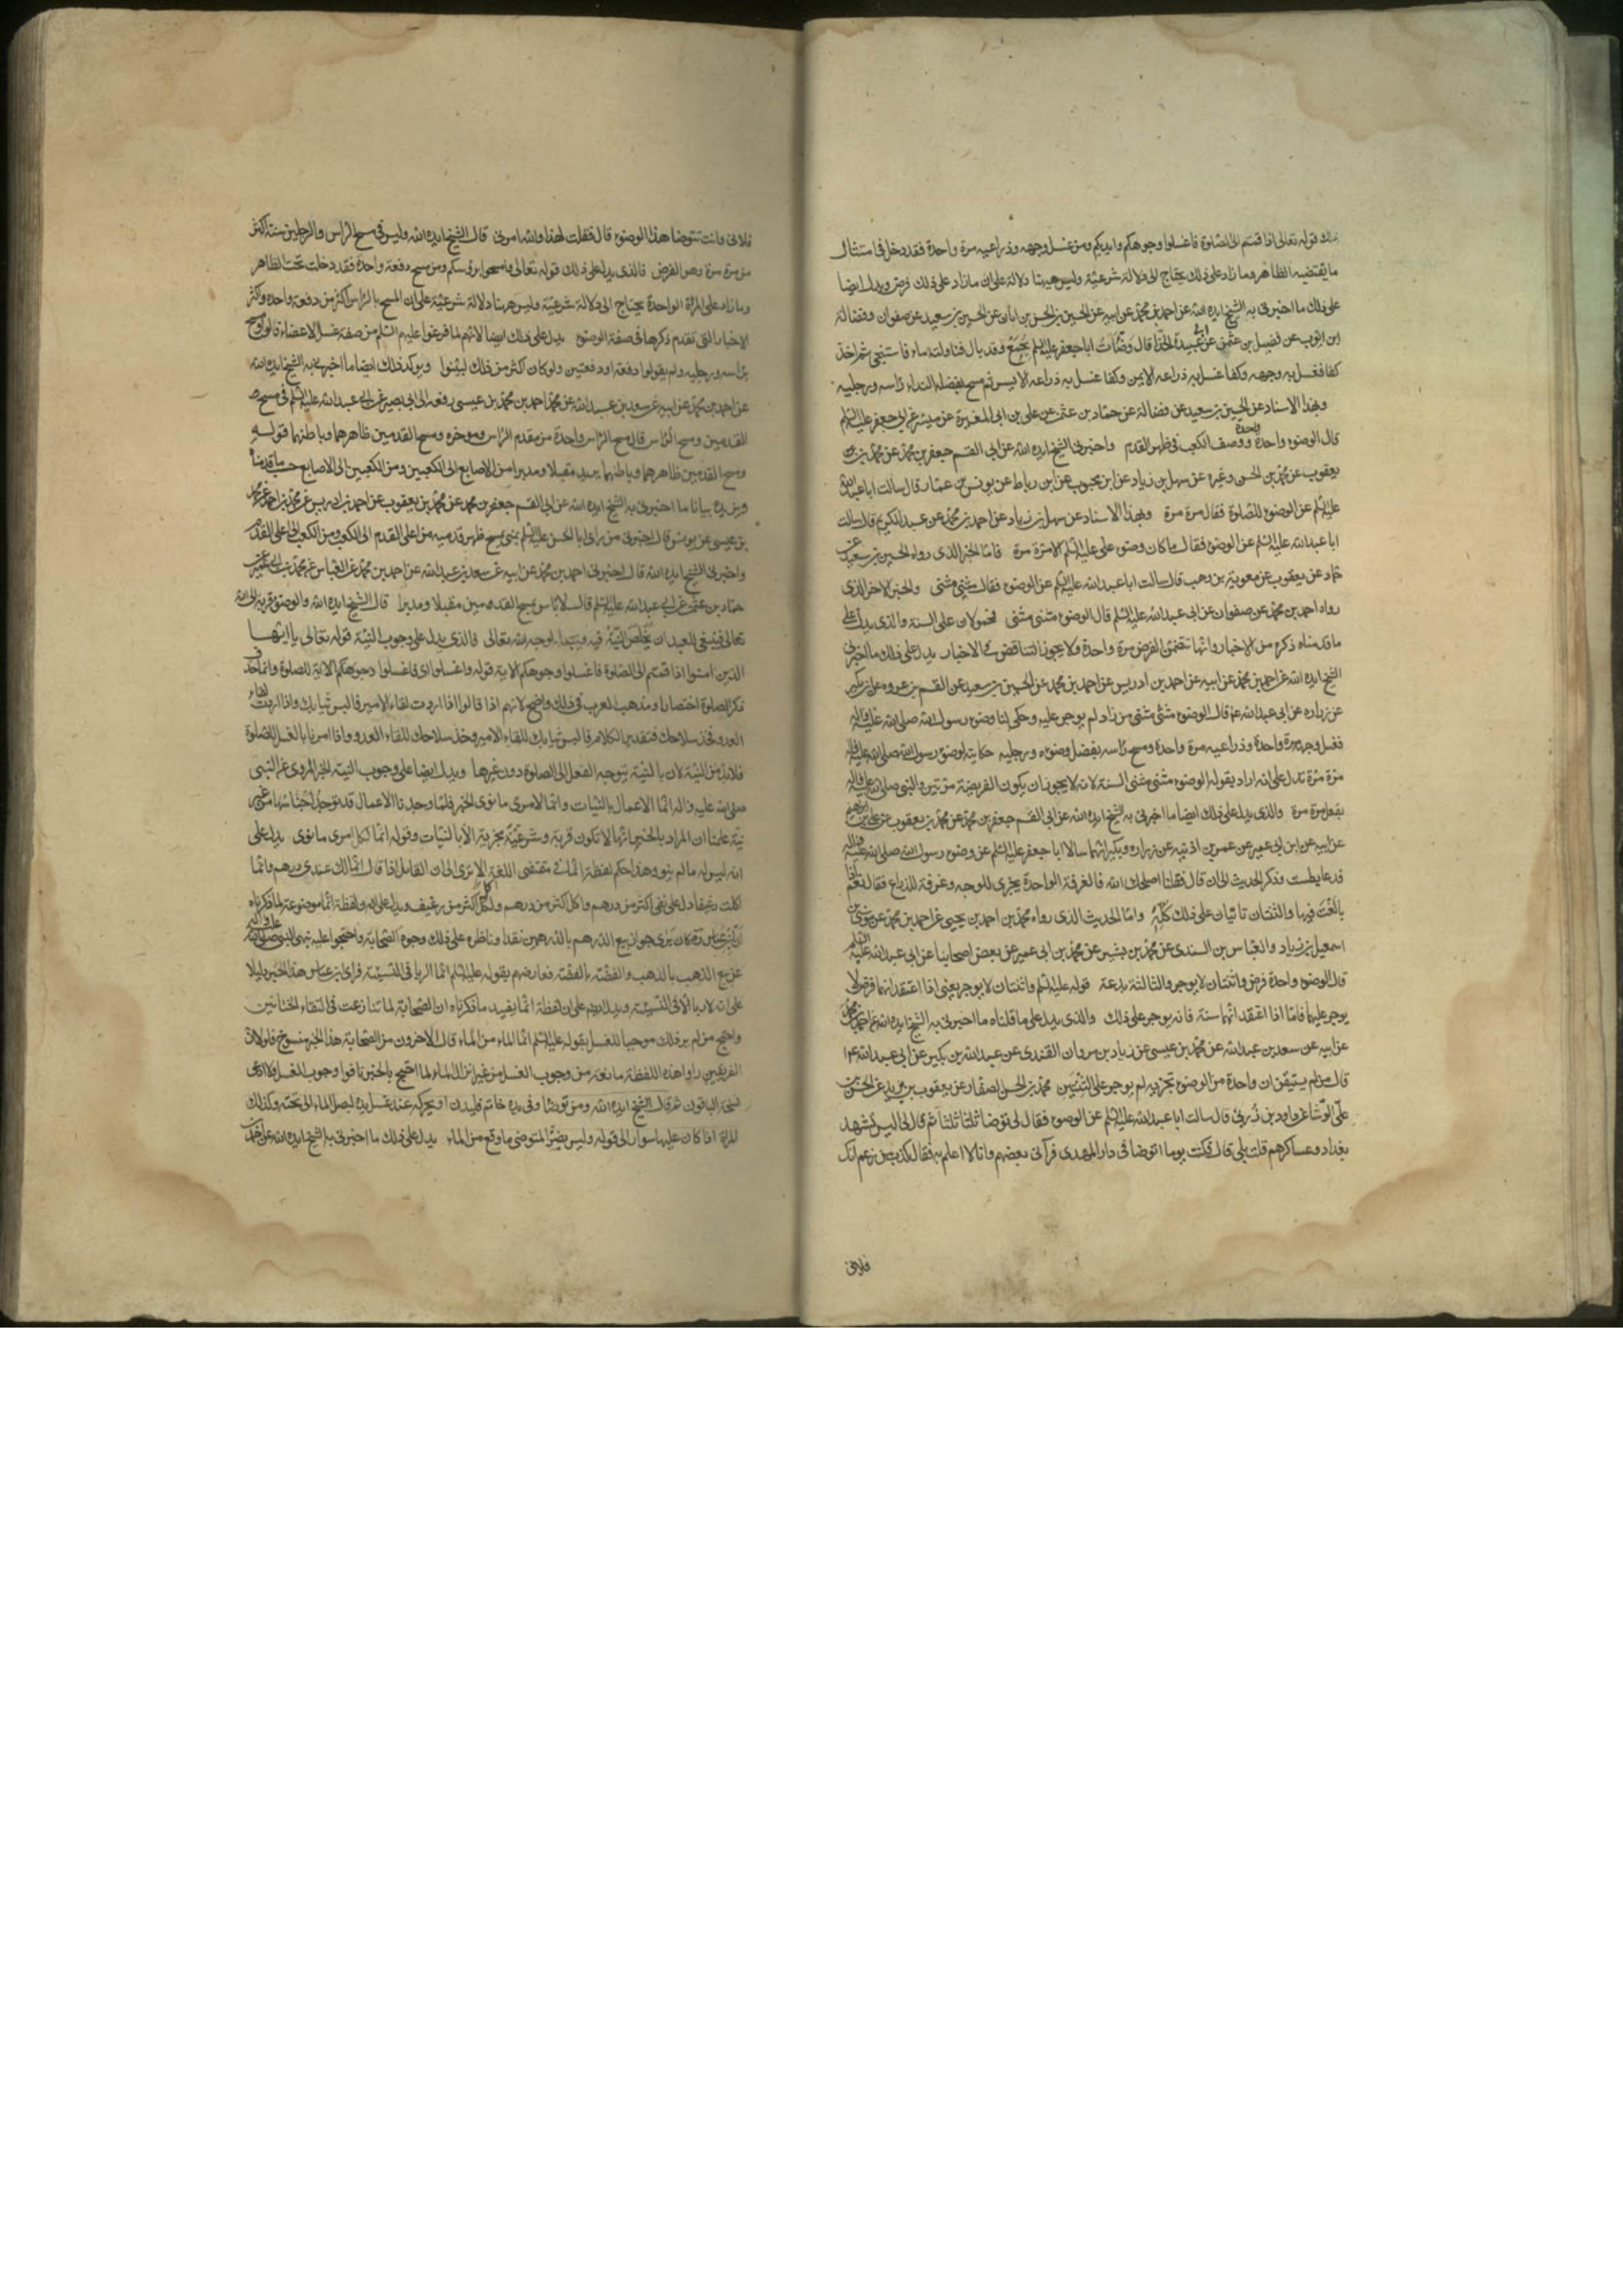 ذلك قوله تعالى اذا قمتم الى الصلوة فاغسلوا وجوهكم وايديكم ومن غسل وجهه وذراعيه مرة واحدة فقد دخل في امتثال
ما يقتضيه الظاهر وما زاد على ذلك يحتاج الى دلالة شرعيّة وليس ههنا دلالة على ان ما زاد على ذلك فرض ويدل ايضا
على ذلك ما اخبرني به الشيخ ايده الله عن احمد بن محمّد عن ابيه عن الحسين بن الحسن بن ابان عن الحسين بن سعيد عن صفوان وفضالة
ابن ايّوب عن فضيل بن عثمن عن ابي عُبيدة الحذّا قال وَضّأت ابا جعفر عليه السلم بجَمْعٍ وقد بال فناولته ماء فاستنجى ثم اخذ
كفا فغسل به وجهه وكفا غسل به ذراعه الايمن وكفا غسل به ذراعه الايسر ثم مسح بفضلة الندا راسه ورجليه
وبهذا الاسناد عن الحسين بن سعيد عن فضالة عن حمّاد بن عثمن عن علي بن ابي المغيرة عن ميسرة عن ابي جعفر عليه السلم
قال الوضوء واحدة واحدة ووصف الكعب في ظهر القدم واخبرني الشيخ ايده الله عن ابي القسم جعفر بن محمّد عن محمّد بن
يعقوب عن محمّد بن الحسن وغيره عن سهل بن زياد عن ابن محبوب عن ابن رباط عن يونس بن عمّار قال سالت ابا عبد الله
عليه السلم عن الوضوء للصّلوة فقال مرة مرة وبهذا الاسناد عن سهل بن زياد عن احمد بن محمّد عن عبد الكريم قال سالت
ابا عبد الله عليه السلم عن الوضوء فقال ما كان وضوء علي عليه السلم الا مرّة مرة فامّا الخبر الذي رواه الحسين بن سعيد عن
حمّاد عن يعقوب عن معوية بن وهب قال سالت ابا عبد الله عليه السلم عن الوضوء فقال مثنى مثنى والخبر الاخر الذي
رواه احمد بن محمّد عن صفوان عن ابي عبد الله عليه السلم قال الوضوء مثنى مثنى فمحمولان على السنة والذي يدل على
ما قدمناه ذكره من الاخبار وانّها تتضمّن الفرض مرة واحدة ولا يجوز التناقض في الاخبار يدل على ذلك ما اخبرني
الشيخ ايده الله عن احمد بن محمّد عن ابيه عن احمد بن ادريس عن احمد بن محمّد عن الحسين بن سعيد عن القسم بن عروه عن ابن بكير
عن زراره عن ابي عبد الله قال الوضوء مثنى مثنى من زاد لم يوجر عليه وحكى لنا وضوء رسول الله صلى الله عليه واله
فغسل وجهه مرة واحدة وذراعيه مرة واحدة ومسح راسه بفضل وضوءه ورجليه حكايته لوضوء رسول الله صلى الله عليه واله
مرّة مرّة تدل على انه اراد بقوله الوضوء مثنى مثنى السنة لانه لا يجوز ان يكون الفريضة مرّتين والنبي صلى الله عليه واله
يفعل مرة مرة والذي يدل على ذلك ايضا ما اخبرني به الشيخ ايده الله عن ابي القسم جعفر بن محمّد عن محمّد بن يعقوب عن علي بن ابرهيم
عن ابيه عن ابن ابي عمير عن عمر بن اذينه عن زراره وبكير انّهما سالا ابا جعفر عليه السلم عن وضوء رسول الله صلى الله عليه واله
فدعا بطست وذكر الحديث الى ان قال فقلنا اصلحك الله فالغرفة الواحدة يجزي للوجه وغرفة للذراع فقال نعم اذا
بالَغْتَ فيها والثنتان تاتيان على ذلك كلِّهِ وامّا الحديث الذي رواه محمّد بن احمد بن يحيى عن احمد بن محمّد عن موسى بن
اسمعيل بن زياد والعبّاس بن السندي عن محمّد بن بشير عن محمّد بن ابي عمير عن بعض اصحابنا عن ابي عبد الله عليه السلم
قال الوضوء واحدة فرض واثنتان لا يوجر والثالثة بدعة قوله عليه السلم واثنتان لا يوجر يعني اذا اعتقد انهما فرض لا
يوجر عليهما فامّا اذا اعتقد انّهما سنة فانه يوجر على ذلك والذي يدل على ما قلناه ما اخبرني به الشيخ ايده الله عن احمد بن محمّد
عن ابيه عن سعد بن عبد الله عن محمّد بن عيسى عن زياد بن مروان القندي عن عبد الله بن بكير عن ابي عبد الله
قال من لم يستيقن ان واحدة من الوضوء تجزيه لم يوجر على الثنتين محمّد بن الحسن الصفار عن يعقوب بن يزيد عن الحسن بن
علي الوشّا عن داود بن زُربي قال سالت ابا عبد الله عليه السلم عن الوضوء فقال لي توضا ثلثا ثلثا ثم قال لي اليس تشهد
بغداد وعساكرهم قلت بلى قال فكنت يوما اتوضا في دار المهدي فرآني بعضهم وانا لا اعلم به فقال كذب من زعم انك
فلاني
فلاني وانت تتوضا هذا الوضوء قال فقلت لهذا والله امرني قال الشيخ ايده الله وليس في مسح الراس والرجلين سنة اكثر
من مرة مرة وهو الفرض فالذي يدل على ذلك قوله تعالى وامسحوا برؤسكم ومن مسح دفعة واحدة فقد دخلت تحت الظاهر
وما زاد على المرّة الواحدة يحتاج الى دلالة شرعيّة وليس ههنا دلالة شرعيّة على ان المسح بالراس اكثر من دفعة واحدة واكثر
الاخبار التي تقدم ذكرها في صفة الوضوء يدل على ذلك ايضا لانهم لما فرغوا عليهم السلم من صفة غسل الاعضاء قالوا ومسح
براسه ورجليه ولم يقولوا دفعة او دفعتين ولو كان اكثر من ذلك لبيّنوا ويوكد ذلك ايضا ما اخبرني به الشيخ ايده الله
عن احمد بن محمّد عن ابيه عن سعد بن عبد الله عن محمّد بن احمد بن محمّد بن عيسى رفعه الى ابي بصير عن ابي عبد الله عليه السلم في مسح
القدمين ومسح الرّاس قال مسح الرّاس واحدة من مقدم الرّاس وموخره ومسح القدمين ظاهرهما وباطنهما قوله
ومسح القدمين ظاهرهما وباطنهما يريد مقبلا ومدبرا من الاصابع الى الكعبين ومن الكعبين الى الاصابع حسب ما قدمناه
ويزيده بيانا ما اخبرني به الشيخ ايده الله عن ابي القسم جعفر بن محمّد عن محمّد بن يعقوب عن احمد بن ادريس عن محمّد بن احمد عن محمّد
بن عيسى عن يونس قال اخبرني من راى ابا الحسن عليه السلم بمنى يمسح ظهر قدميه من اعلى القدم الى الكعب ومن الكعب الى اعلى القدم
واخبرني الشيخ ايده الله قال اخبرني احمد بن محمّد عن ابيه عن سعد بن عبد الله عن احمد بن محمّد عن العبّاس عن محمّد بن ابي عمير عن
حمّاد بن عثمن عن ابي عبد الله عليه السلم قال لا باس بمسح القدمين مقبلا ومدبرا قال الشيخ ايده الله والوضوء قربة الى الله
تعالى فينبغي للعبد ان يخلص النيّة فيه ويجعله لوجه الله تعالى فالذي يدل على وجوب النيّة قوله تعالى يا ايّها
الذين امنوا اذا قمتم الى الصلوة فاغسلوا وجوهكم الاية قوله فاغسلوا اي فاغسلوا وجوهكم الاية للصلوة وانما حذف
ذكر الصلوة اختصارا ومذهب العرب في ذلك واضح لانهم اذا قالوا اذا اردت لقاء الامير فالبس ثيابك واذا اردت لقاء
العدو فخذ سلاحك فتقدير الكلام فالبس ثيابك للقاء الامير وخذ سلاحك للقاء العدو واذا امرنا بالغسل للصّلوة
فلا بدّ من النيّة لان بالنيّة يتوجه الفعل الى الصلوة دون غيرها ويدل ايضا على وجوب النية الخبر المروي عن النبي
صلى الله عليه واله انّما الاعمال بالنّيات وانّما لامرئ ما نوى الخبر فلمّا وجدنا الاعمال قد توجد اجناسها من غير
نيّة علمنا ان المراد بالخبر انّها لا تكون قربة وشرعيّة مجزية الا بالنيات وقوله انّما لكل امرئ ما نوى يدل على
انه ليس له ما لم ينو وهذا حكم لفظة انّما في مقتضى اللغة الا ترى الى ان القايل اذا قال انّما لك عندي درهم وانّما
اكلت رغيفا دل على نفي اكثر من درهم واكل اكثر من رغيف ويدل على ان لفظة انّما موضوعة لما ذكرناه
ان ابن عباس ره كان يرى جواز بيع الدرهم بالدرهمين نقدا وناظره على ذلك وجوه الصّحابة واحتجوا عليه بنهي النبي صلى الله عليه واله
عن بيع الذهب بالذهب والفضّة بالفضّة فعارضهم بقوله عليه السلم انّما الربا في النّسيئة فراى ابن عباس هذا الخبر دليلا
على انه لا ربا الا في النسيئة ويدل ايضا على ان لفظة انّما يفيد ما ذكرناه ان الصّحابة لما تنازعت في التقاء الختانين
واحتج من لم ير ذلك موجبا للغسل بقوله عليه السلم انّما الماء من الماء قال الاخرون من الصّحابة هذا الخبر منسوخ فلولا ان
الفريقين راوا هذه اللفظة مانعة من وجوب الغسل من غير انزال الماء لما احتج بالخبر نافوا وجوب الغسل ولا ادعى
نسخه الباقون ثم قال الشيخ ايده الله ومن توضّا وفي يده خاتم فليدره او يحركه عند غسل يده ليصل الماء الى تحته وكذلك
المراة اذا كان عليها سوار الى قوله وليس يضرّ المتوضي ما وقع من الماء يدل على ذلك ما اخبرني به الشيخ ايده الله عن احمد بن